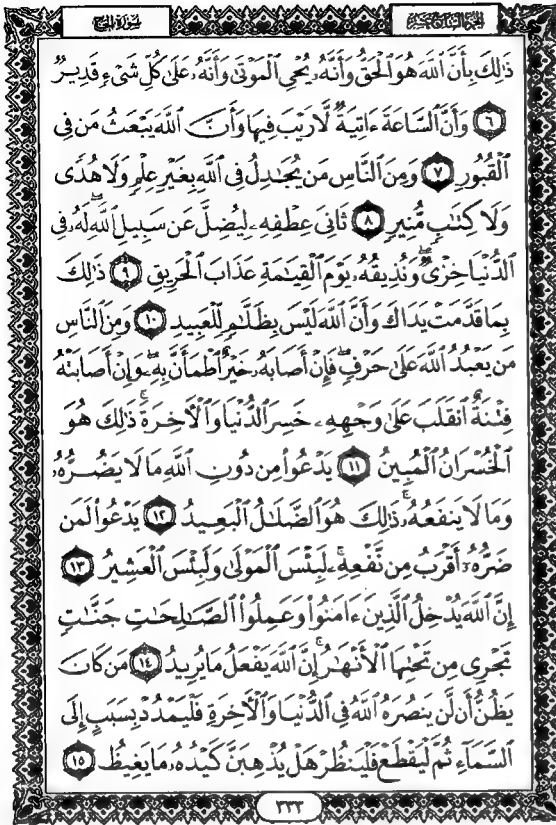 سُورَةُ الحَجِّ
الجُزْءُ السَّابِعَ عَشَرَ
ذَٰلِكَ بِأَنَّ ٱللَّهَ هُوَ ٱلْحَقُّ وَأَنَّهُۥ يُحْىِ ٱلْمَوْتَىٰ وَأَنَّهُۥ عَلَىٰ كُلِّ شَىْءٍ قَدِيرٌ
٦ وَأَنَّ ٱلسَّاعَةَ ءَاتِيَةٌ لَّا رَيْبَ فِيهَا وَأَنَّ ٱللَّهَ يَبْعَثُ مَن فِى
ٱلْقُبُورِ ٧ وَمِنَ ٱلنَّاسِ مَن يُجَٰدِلُ فِى ٱللَّهِ بِغَيْرِ عِلْمٍ وَلَا هُدًى
وَلَا كِتَٰبٍ مُّنِيرٍ ٨ ثَانِىَ عِطْفِهِۦ لِيُضِلَّ عَن سَبِيلِ ٱللَّهِۖ لَهُۥ فِى
ٱلدُّنْيَا خِزْىٌۖ وَنُذِيقُهُۥ يَوْمَ ٱلْقِيَٰمَةِ عَذَابَ ٱلْحَرِيقِ ٩ ذَٰلِكَ
بِمَا قَدَّمَتْ يَدَاكَ وَأَنَّ ٱللَّهَ لَيْسَ بِظَلَّٰمٍ لِّلْعَبِيدِ ١٠ وَمِنَ ٱلنَّاسِ
مَن يَعْبُدُ ٱللَّهَ عَلَىٰ حَرْفٍۖ فَإِنْ أَصَابَهُۥ خَيْرٌ ٱطْمَأَنَّ بِهِۦۖ وَإِنْ أَصَابَتْهُ
فِتْنَةٌ ٱنقَلَبَ عَلَىٰ وَجْهِهِۦ خَسِرَ ٱلدُّنْيَا وَٱلْأَخِرَةَۚ ذَٰلِكَ هُوَ
ٱلْخُسْرَانُ ٱلْمُبِينُ ١١ يَدْعُوا۟ مِن دُونِ ٱللَّهِ مَا لَا يَضُرُّهُۥ
وَمَا لَا يَنفَعُهُۥۚ ذَٰلِكَ هُوَ ٱلضَّلَٰلُ ٱلْبَعِيدُ ١٢ يَدْعُوا۟ لَمَن
ضَرُّهُۥٓ أَقْرَبُ مِن نَّفْعِهِۦۚ لَبِئْسَ ٱلْمَوْلَىٰ وَلَبِئْسَ ٱلْعَشِيرُ ١٣
إِنَّ ٱللَّهَ يُدْخِلُ ٱلَّذِينَ ءَامَنُوا۟ وَعَمِلُوا۟ ٱلصَّٰلِحَٰتِ جَنَّٰتٍ
تَجْرِى مِن تَحْتِهَا ٱلْأَنْهَٰرُۚ إِنَّ ٱللَّهَ يَفْعَلُ مَا يُرِيدُ ١٤ مَن كَانَ
يَظُنُّ أَن لَّن يَنصُرَهُ ٱللَّهُ فِى ٱلدُّنْيَا وَٱلْأَخِرَةِ فَلْيَمْدُدْ بِسَبَبٍ إِلَى
ٱلسَّمَآءِ ثُمَّ لْيَقْطَعْ فَلْيَنظُرْ هَلْ يُذْهِبَنَّ كَيْدُهُۥ مَا يَغِيظُ ١٥
٣٣٣